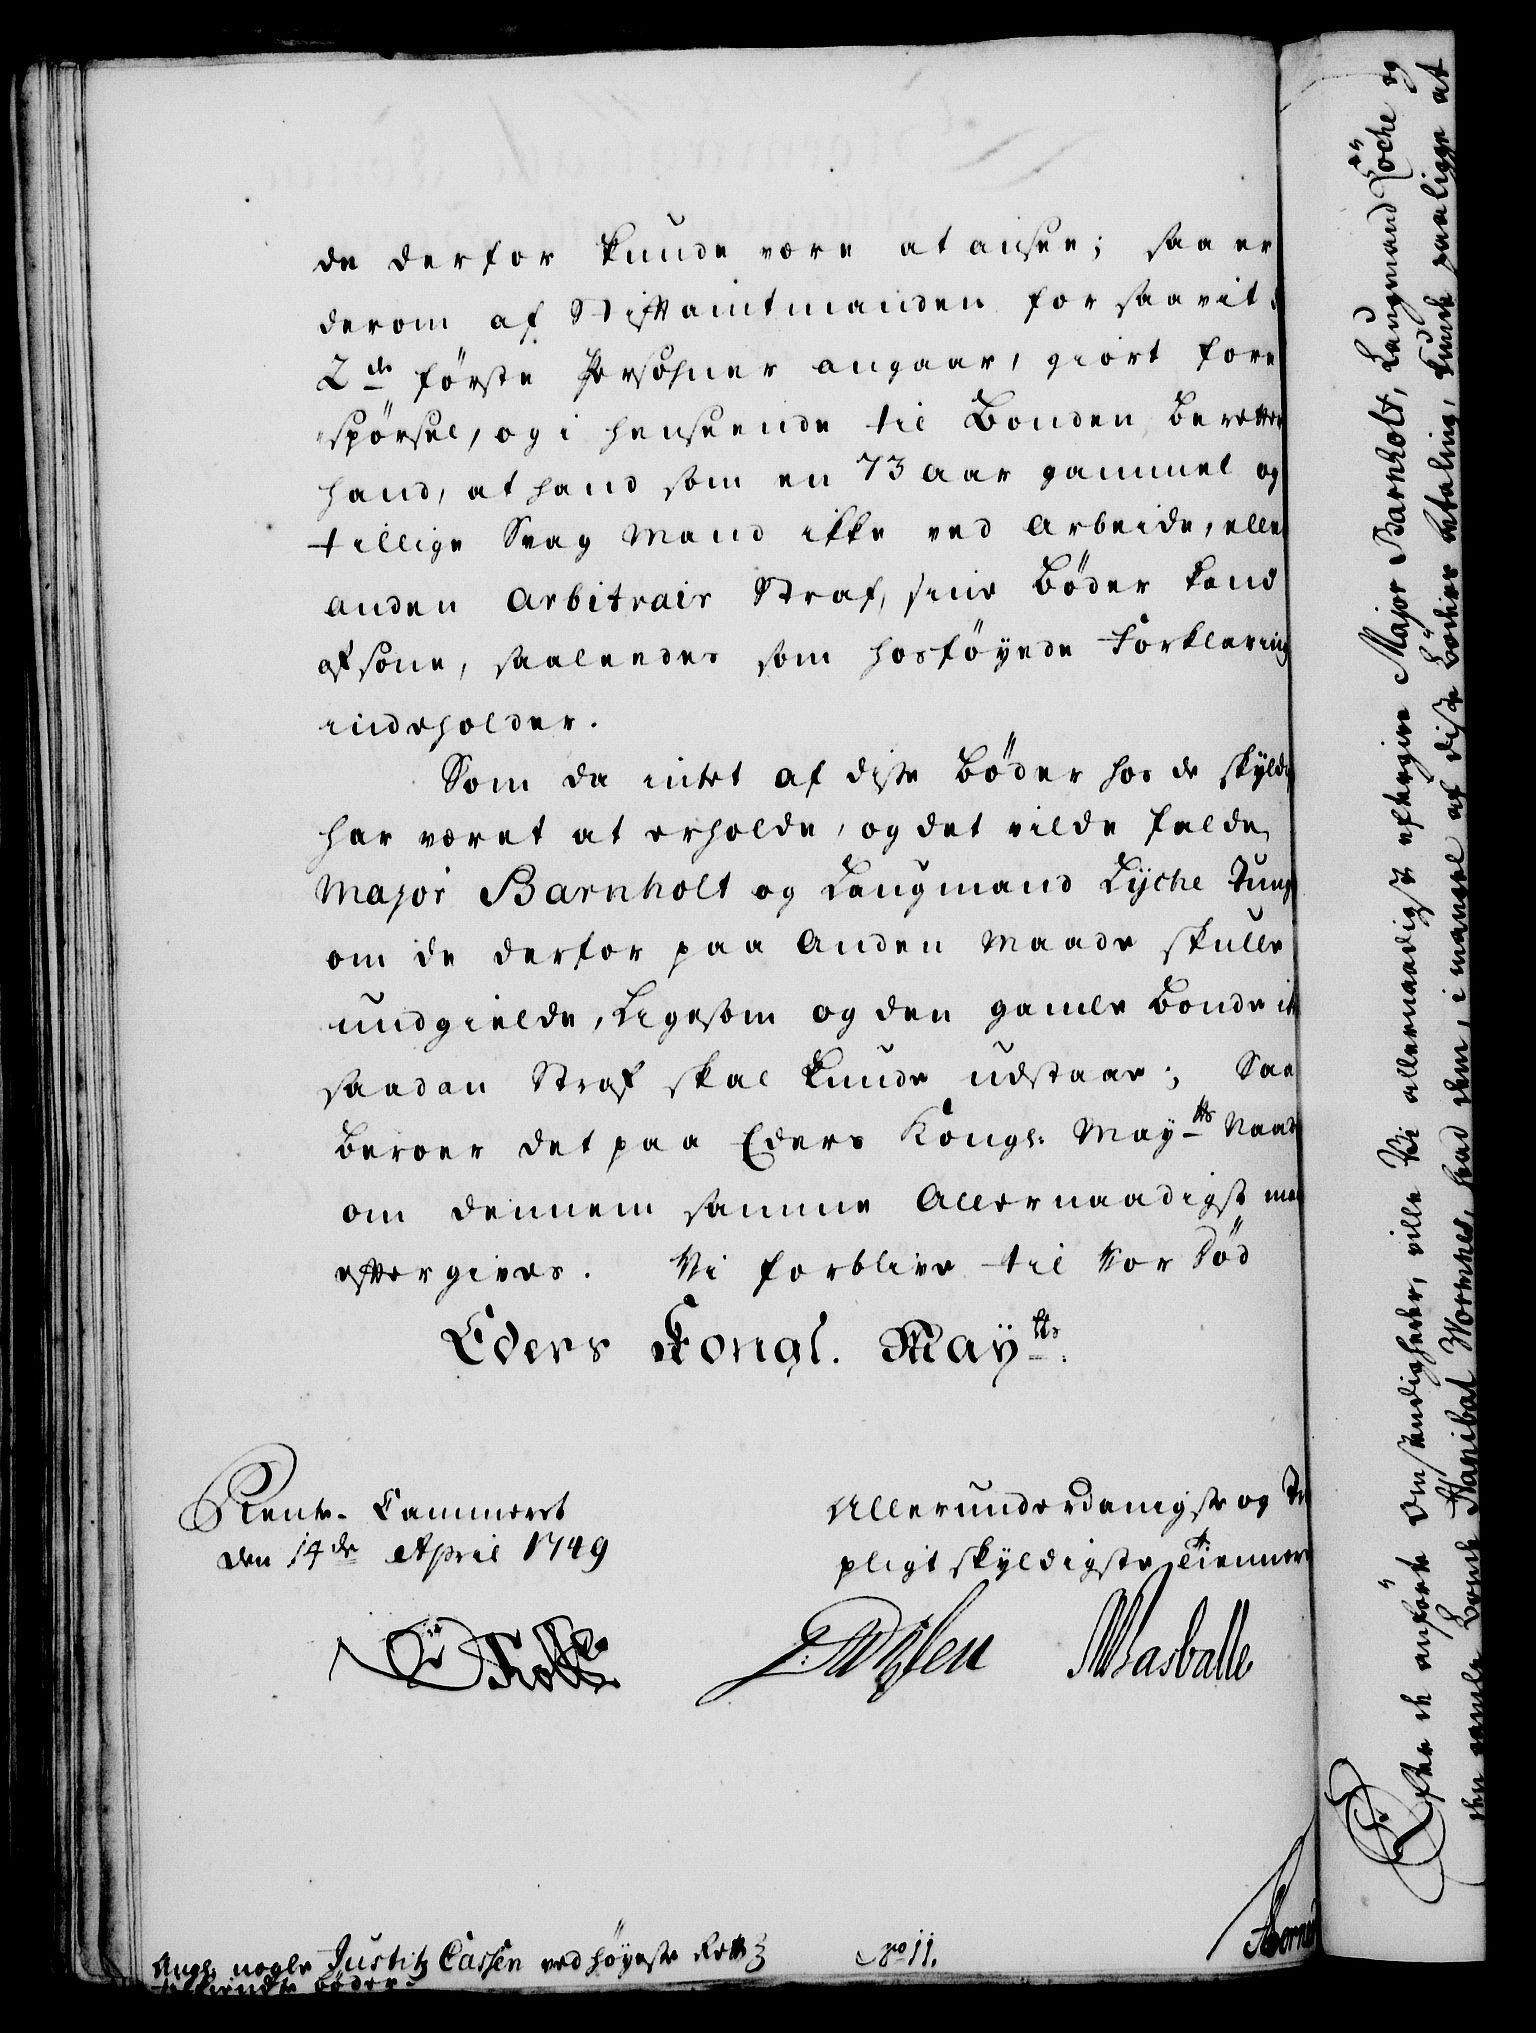 de derfor kunde være at ansee; saa er
derom af Stiftamtmanden for saavit
2de første Persohner angaar, giort fore
spørsel, og i henseende til Bonden beretter
hand, at hand som en 73 aar gammel og
tillige Svag Mand ikke ved Arbeide, eller
anden Arbitrair Straf, sine Bøder kand
afsone, saaleedes som hosføyede Forklaring
indeholder.
Som da intet af disse Bøder hos de skyldig
har været at erholde, og det vilde falde
Major Barnholt og Laugmand Lÿche tung
om de derfor paa Anden Maade skulle
undgielde, Ligesom og den gamle Bonde ik
saadan Straf skal kunde udstaae; Saa
beroer det paa Eders Kongl: Mayts Naade
om dennem samme Allernaadigst maa
eftergives. Vi forblive til Vor Død
Eders Kongl. Mayts:
Rente-Cammeret
den 14de April 1749
Allerunderdanigste og Tr
pligt skyldigste Tiennere
Angl: nogle Justitz Cassen ved høyeste Rett
No 11.
Efter de anførte Omstændigheder, ville Vi allernaadigst eftergive Major Barnholt, Laugmand Lÿche og
den gamle Bonde Hanibal, hvad dem, i mangel af disse Bøders betaling, kunde paaligge at